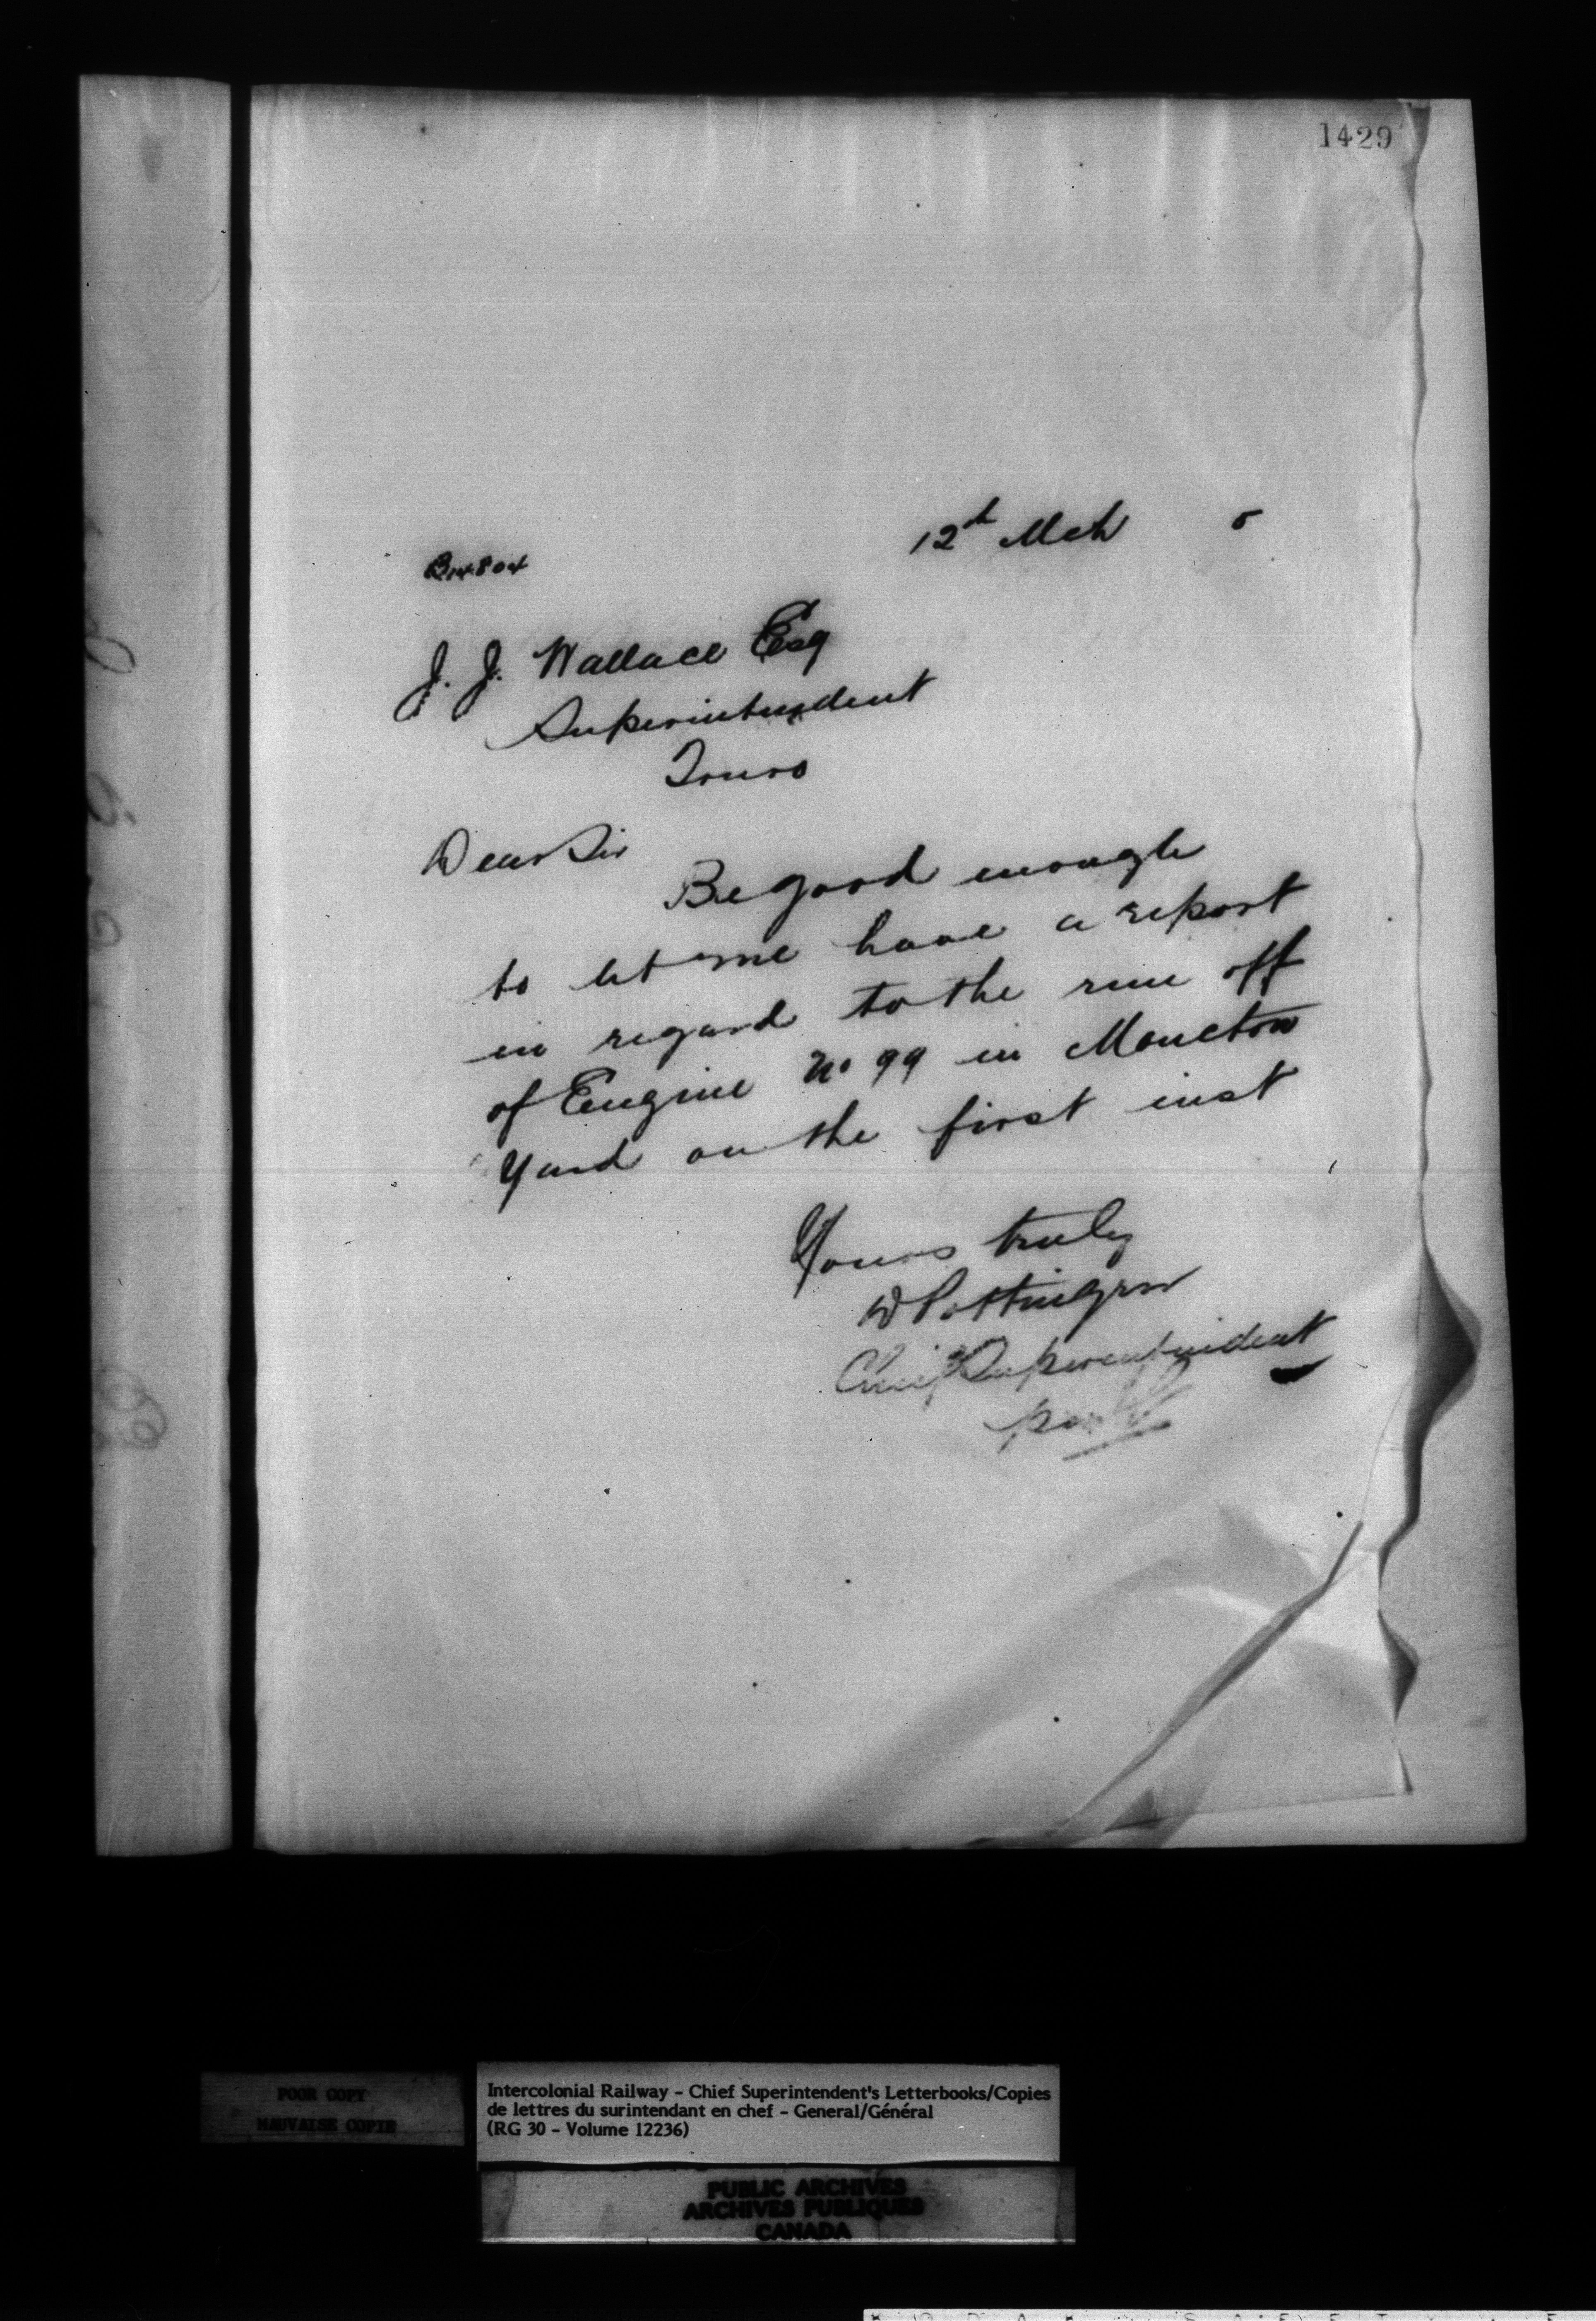 1429
12th Mch 5
B14804
J. J. Wallace Esq
Superintendent
Truro
Dear Sir
Be good enough
to let me have a report
in regard to the run off
of Engine No 99 in Moncton
Yard on the first inst
Yours truly
D Pottinger
Chief Superintendent
per
POOR COPY
MAUVAISE COPIE
Intercolonial Railway - Chief Superintendent's Letterbooks/Copies
de lettres du surintendant en chef - General/Général
(RG 30 - Volume 12236)
PUBLIC ARCHIVES
ARCHIVES PUBLIQUES
CANADA